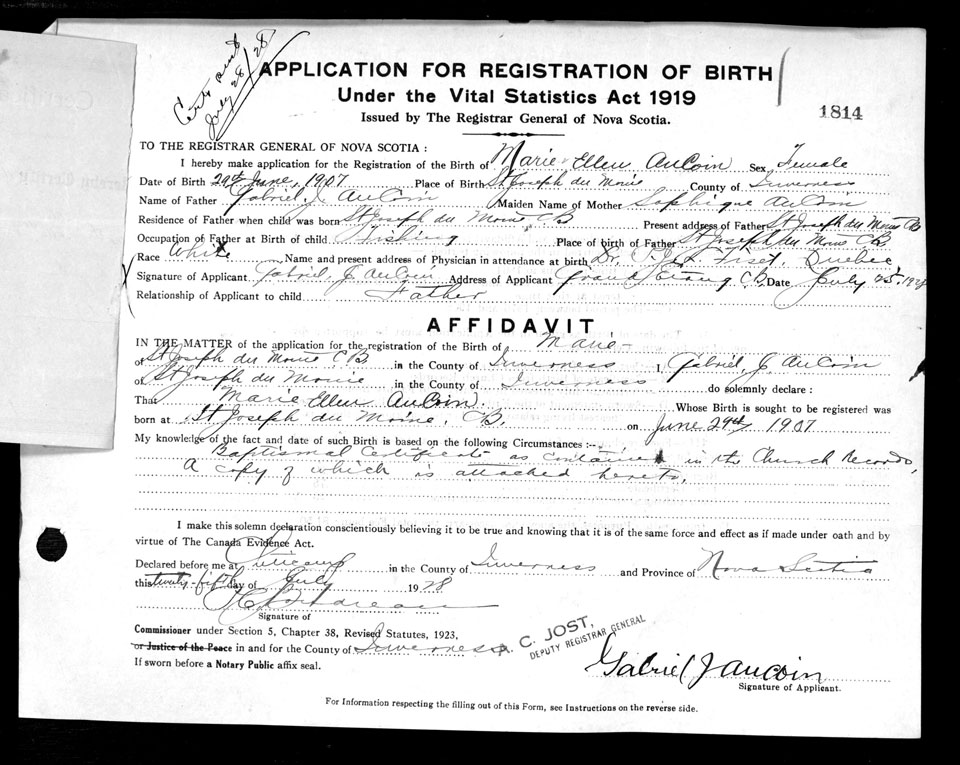 Cert sent
July 28/28
APPLICATION FOR REGISTRATION OF BIRTH
Under the Vital Statistics Act 1919
1814
Issued by The Registrar General of Nova Scotia.
TO THE REGISTRAR GENERAL OF NOVA SCOTIA :
I hereby make application for the Registration of the Birth of Marie Ellen AuCoin Sex Female
Date of Birth 29th June, 1907 Place of Birth St Joseph du Moine County of Inverness
Name of Father Gabriel J. AuCoin Maiden Name of Mother Sophique AuCoin
Residence of Father when child was born St Joseph du Moine C B Present address of Father St Joseph du Moine C B
Occupation of Father at Birth of child Fishing Place of Father St Joseph du Moine C B
Race White Name and present address of Physician in attendance at birth Dr. Fiset, Quebec
Signature of Applicant Gabriel J. AuCoin Address of Applicant Grand Etang C.B. Date July 25th 1928
Relationship of Applicant to child Father
AFFIDAVIT
IN THE MATTER of the application for the registration of the Birth of Marie
of St Joseph du Moine C B in the County of Inverness I, Gabriel J. AuCoin
of St Joseph du Moine in the County of Inverness do solemnly declare :
That Marie Ellen AuCoin. Whose Birth is sought to be registered was
born at St Joseph du Moine, C.B. on June 29th 1907
My knowledge of the fact and date of such Birth is based on the following Circumstances :--
Baptismal Certificate as contained in the Church Records,
A copy of which is attached hereto.
I make this solemn declaration conscientiously believing it to be true and knowing that it is of the same force and effect as if made under oath and by
virtue of The Canada Evidence Act.
Declared before me at Cheticamp in the County of Inverness and Province of Nova Scotia
this twenty-fifth day of July 1928
Boudreau
Signature of
Commissioner under Section 5, Chapter 38, Revised Statutes, 1923,
or Justice of the Peace in and for the County of Inverness
If sworn before a Notary Public affix seal.
A. C. JOST,
DEPUTY REGISTRAR GENERAL
Gabriel J aucoin
Signature of Applicant.
For Information respecting the filling out of this Form, see Instructions on the reverse side.